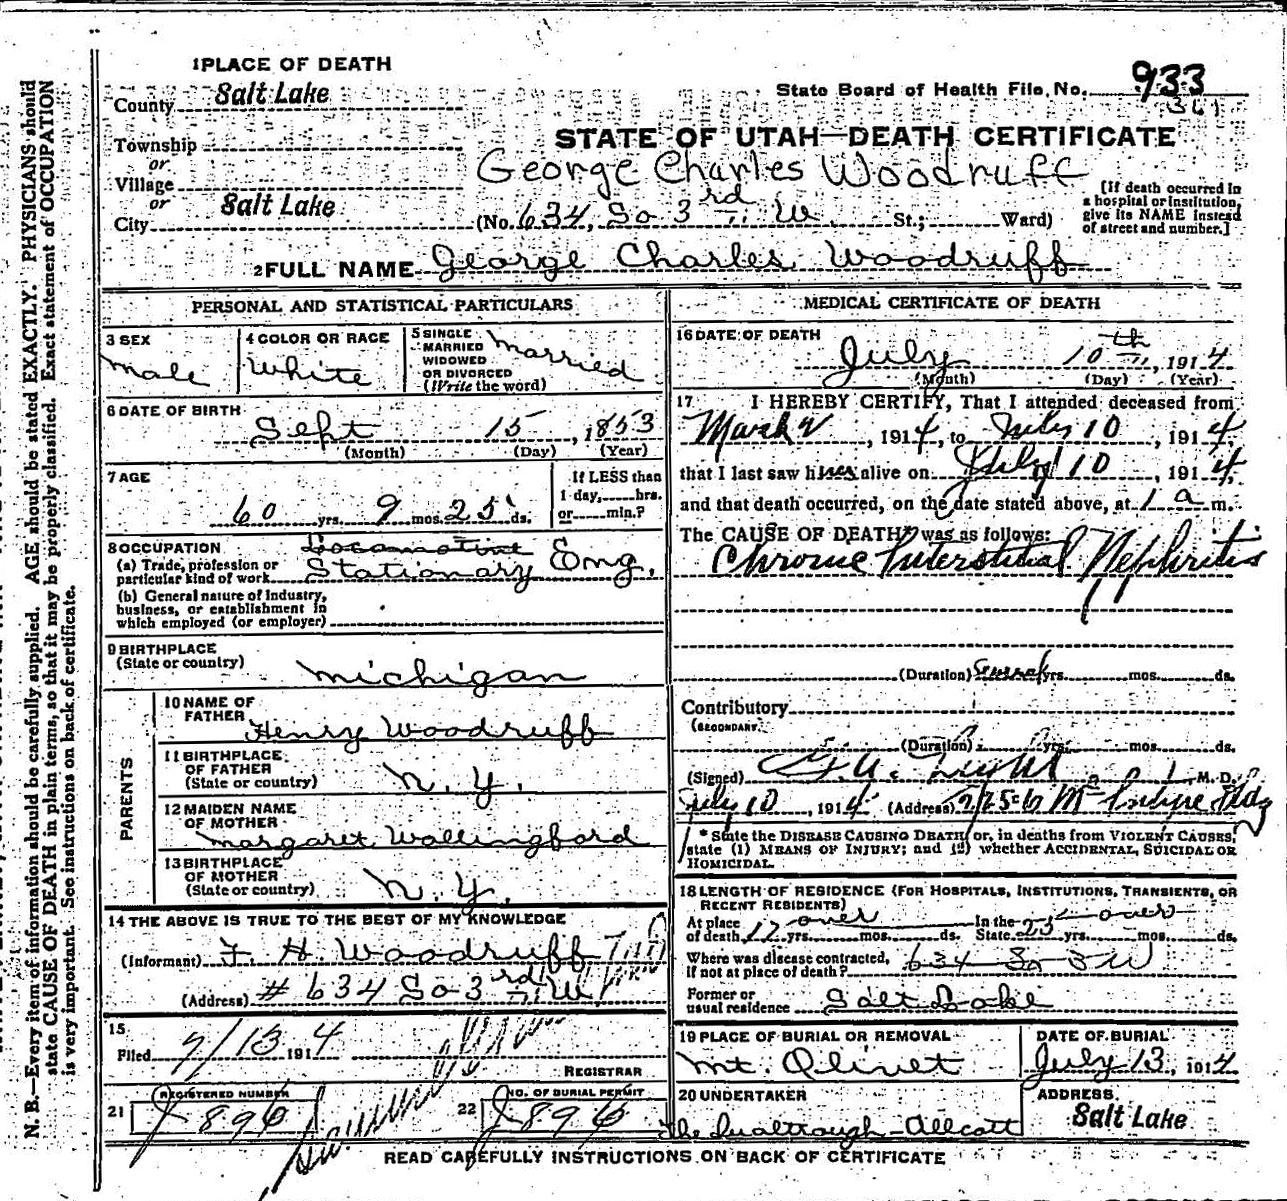 1 PLACE OF DEATH
County Salt Lake
State Board of Health File No. 933
361
STATE OF UTAH—DEATH CERTIFICATE
Township
or
Village
or
City Salt Lake
George Charles Woodruff
(No. 634, So 3rd W. St.; Ward)
[If death occurred in
a hospital or institution,
give its NAME instead
of street and number.]
2 FULL NAME George Charles Woodruff
PERSONAL AND STATISTICAL PARTICULARS
3 SEX
Male
4 COLOR OR RACE
White
5 SINGLE
MARRIED
WIDOWED
OR DIVORCED
(Write the word)
Married
6 DATE OF BIRTH
Sept 15, 1853
(Month) (Day) (Year)
7 AGE
60 yrs. 9 mos. 25 ds.
If LESS than
1 day, hrs.
or min.?
8 OCCUPATION
(a) Trade, profession or
particular kind of work
Locomotive
Stationary Eng.
(b) General nature of Industry,
business, or establishment in
which employed (or employer)
9 BIRTHPLACE
(State or country)
Michigan
PARENTS
10 NAME OF
FATHER
Henry Woodruff
11 BIRTHPLACE
OF FATHER
(State or country)
N. Y.
12 MAIDEN NAME
OF MOTHER
Margaret Wallingford
13 BIRTHPLACE
OF MOTHER
(State or country)
N. Y.
14 THE ABOVE IS TRUE TO THE BEST OF MY KNOWLEDGE
(Informant) F. H. Woodruff
(Address) # 634 So 3rd W
15
Filed 7/13 1914
REGISTRAR
21 REGISTERED NUMBER
J 896
22 NO. OF BURIAL PERMIT
J 896
MEDICAL CERTIFICATE OF DEATH
16 DATE OF DEATH
July 10th, 1914
(Month) (Day) (Year)
17 I HEREBY CERTIFY, That I attended deceased from
March, 1914, to July 10, 1914,
that I last saw him alive on July 10, 1914,
and that death occurred, on the date stated above, at 1 a m.
The CAUSE OF DEATH* was as follows:
Chronic Interstitial Nephritis
(Duration) Several yrs. mos. ds.
Contributory
(SECONDARY)
(Duration) yrs. mos. ds.
(Signed) M. D.
July 10, 1914 (Address) 725-6 McIntyre Bldg
* State the DISEASE CAUSING DEATH, or, in deaths from VIOLENT CAUSES,
state (1) MEANS OF INJURY; and (2) whether ACCIDENTAL, SUICIDAL OR
HOMICIDAL.
18 LENGTH OF RESIDENCE (FOR HOSPITALS, INSTITUTIONS, TRANSIENTS, OR
RECENT RESIDENTS)
At place
of death 17 over yrs. mos. ds. In the
State 25 over yrs. mos. ds.
Where was disease contracted,
if not at place of death? 634 So 3 W
Former or
usual residence Salt Lake
19 PLACE OF BURIAL OR REMOVAL
Mt. Olivet
DATE OF BURIAL
July 13, 1914
20 UNDERTAKER
ADDRESS
Salt Lake
READ CAREFULLY INSTRUCTIONS ON BACK OF CERTIFICATE
N. B.—Every item of information should be carefully supplied. AGE should be stated EXACTLY. PHYSICIANS should
state CAUSE OF DEATH in plain terms, so that it may be properly classified. Exact statement of OCCUPATION
is very important. See instructions on back of certificate.